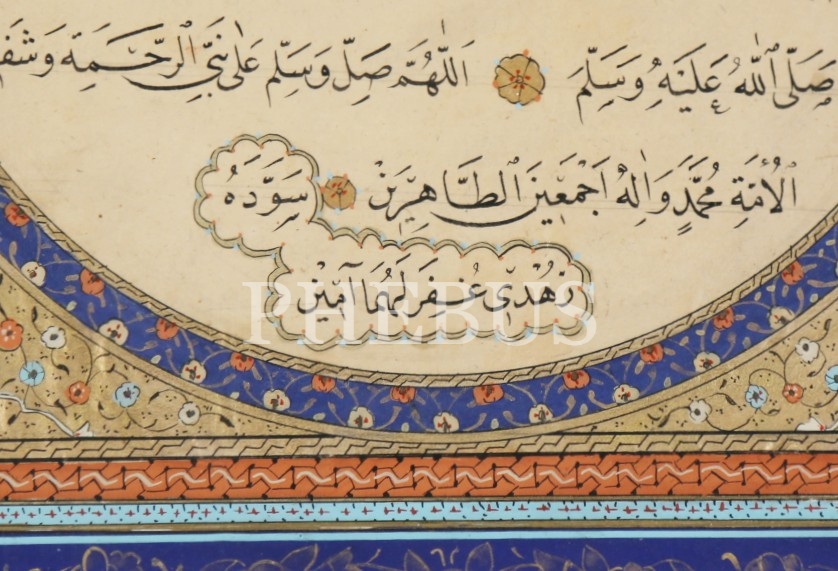 صَلَّى ٱللّٰهُ عَلَيْهِ وَسَلَّمَ اَللّٰهُمَّ صَلِّ وَسَلِّمْ عَلٰى نَبِيِّ ٱلرَّحْمَةِ وَشَفِ
ٱلْاُمَّةِ مُحَمَّدٍ وَاٰلِهِ اَجْمَعِينَ ٱلطَّاهِرِينَ سَوَّدَهُ
زُهْدِي غُفِرَ لَهُمَا آمِينْ
PHEBUS